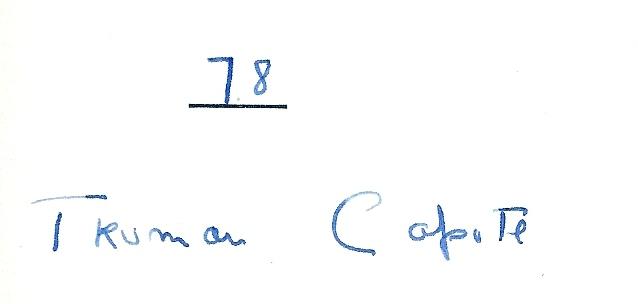 78
Truman Capote